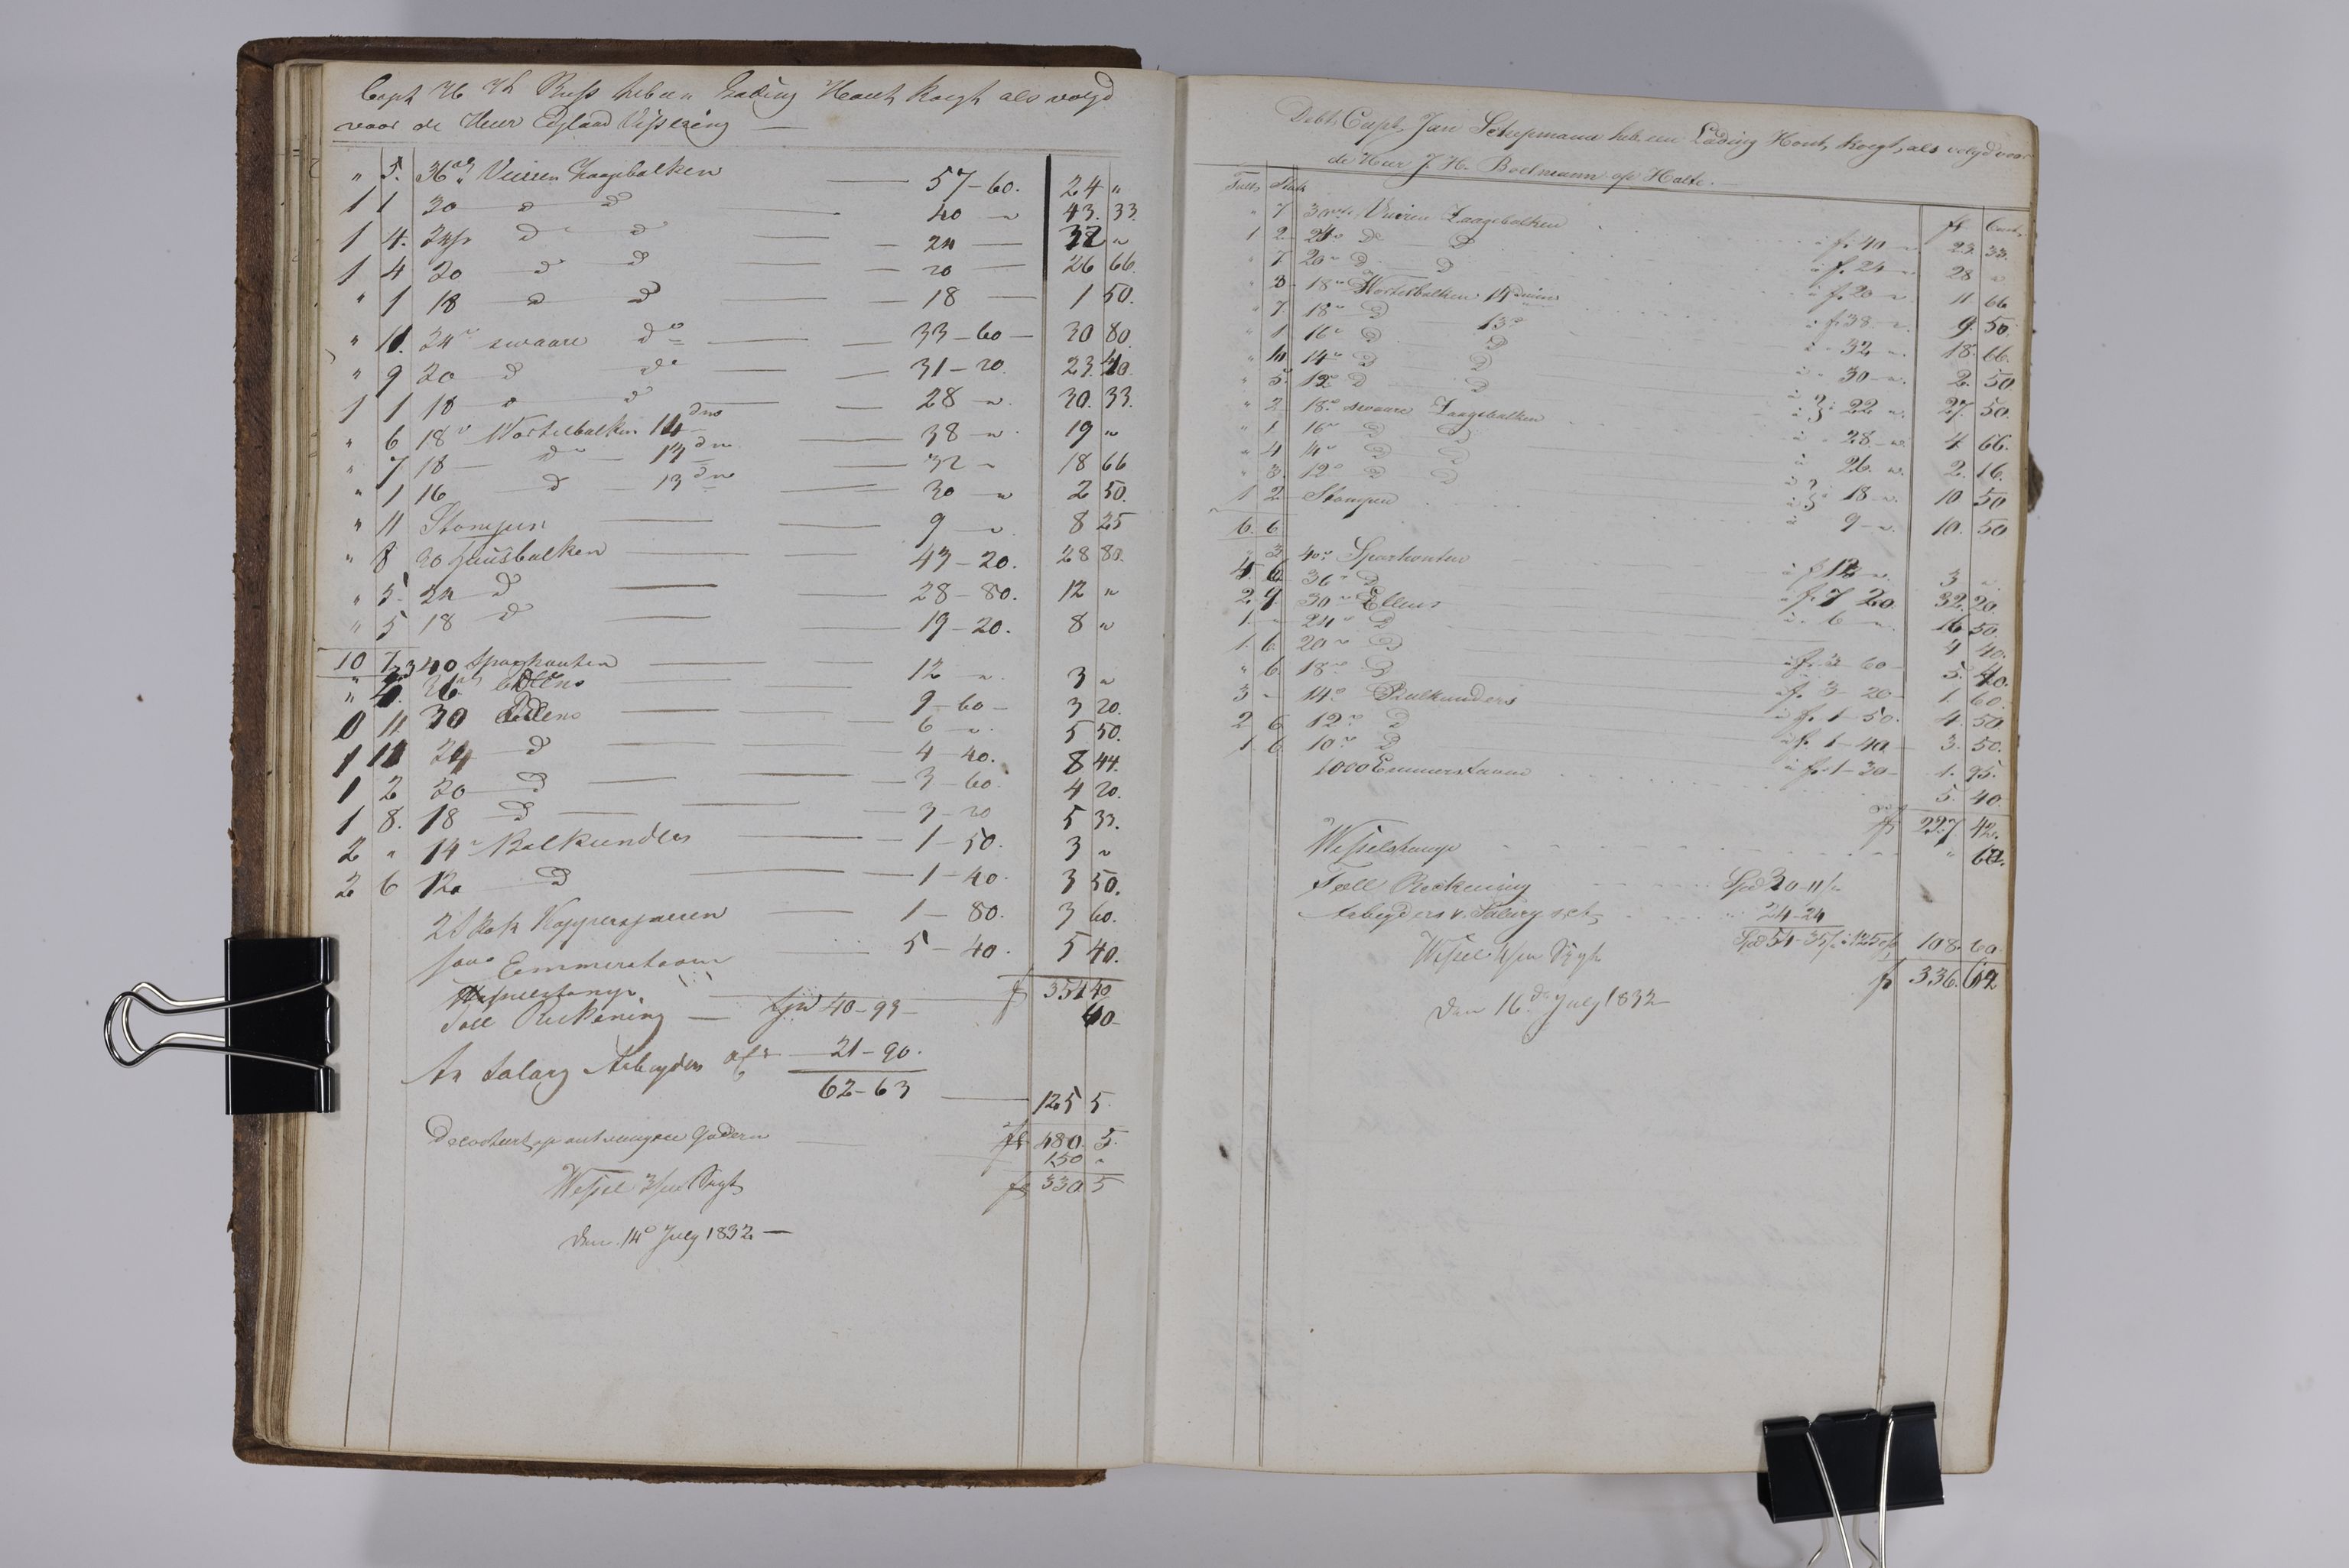 Capt H Buss heb een Lading Hout, koegt als volgd
voor de Heer Vissering —
" 5. 36 Vuiren Zaagebalken — 57-60. 24 "
1 1 30 d d — 40 " 43. 33
1 4. 24 d d — 24 — 32 "
1 4 20 d d — 20 — 26 66
" 1 18 d d — 18 — 1 50.
" 11. 24 swaare do — 33-60 — 30 80
" 9 20 d do — 31-20. 23. 40.
1 1 18 d d — 28 " 30. 33.
" 6 18 Wortelbalken 14 dm — 38 " 19 "
" 7 18 — do — 13 dm — 32 " 18 66
" 1 16 d — 13 dm — 30 " 2 50.
" 11 Stompen — 9 " 8 25
" 8 20 Juisbalken — 43-20. 28 80.
" 5. 24 d — 28-80. 12 "
" 5 18 d — 19-20. 8 "
10 7
3 40 Sparhouten — 12 " 3 "
" 4. 36 — 9-60 — 3 20.
0 11 30 Ellens — 6 " 5 50.
1 11 24 d — 4-40. 8 44.
1 2 20 d — 3-60. 4 20.
1 8. 18 d — 3-20 5 33.
2 " 14 Balkunders — 1-50. 3 "
2 6 12 d — 1-40. 3 50.
2 Skok — 1-80. 3 60.
Emmerstaven — 5-40. 5 40.
f 354 40
Toll Reekening — Spd 40-93 — 60
An Salary Arbeyders — 21-90.
62-63 — 125 5.
f 480. 5.
150 "
Wessel f 330 5
den 14 July 1832 —
Debt Capt, Jan Schepmann heb een Lading Hout, koegt, als volgd voor
de Heer J. H. Boelmann op Halte. —
f Cent,
" 7 30 Vuiren Zaagebalken à f. 40 " 23. 33.
1 2 24 do d à f. 24 " 28 "
" 7 20 d d à f. 20 " 11 66
" 3 18 Wortelbalken 14 duim à f 38 " 9. 50.
" 7 18 d 13 à 32 " 18. 66.
" 1 16 d d à 30 " 2. 50
14 d d à 22 " 27. 50.
" 5. 12 d d
" 2 18 swaare Zaagebalken à 28 " 4. 66.
" 1 16 d d à 26. " 2. 16.
" 4 14 d d à 18 " 10 50
" 3. 12 d d
1 2 Stompen à 9 " 10. 50
6. 6
" 3 40 Sparhouten à f 12 " 3 "
4. 6 36 d à f. 7 20. 32. 20.
2. 9. 30 Ellens à 6 " 16 50.
1. " 24 d 4 40.
1. 6. 20 d à f. 3 60 — 5. 40.
" 6. 18 d à f. 3 — 20 — 1. 60.
3 " 14 Balkunders à f. 1-50. 4. 50
2 6 12 d à f. 1-40 — 3. 50.
1 6. 10 d à f. 1-30 — 1. 95.
1000 Emmerstaven 5. 40.
f 227 42.
Wesselstange " 60.
Toll Reekening Spd 30-11
Arbeyders 24-24
Spd 54-35 à 125 108. 60
Wessel f 336. 62
den 16 do July 1832 —